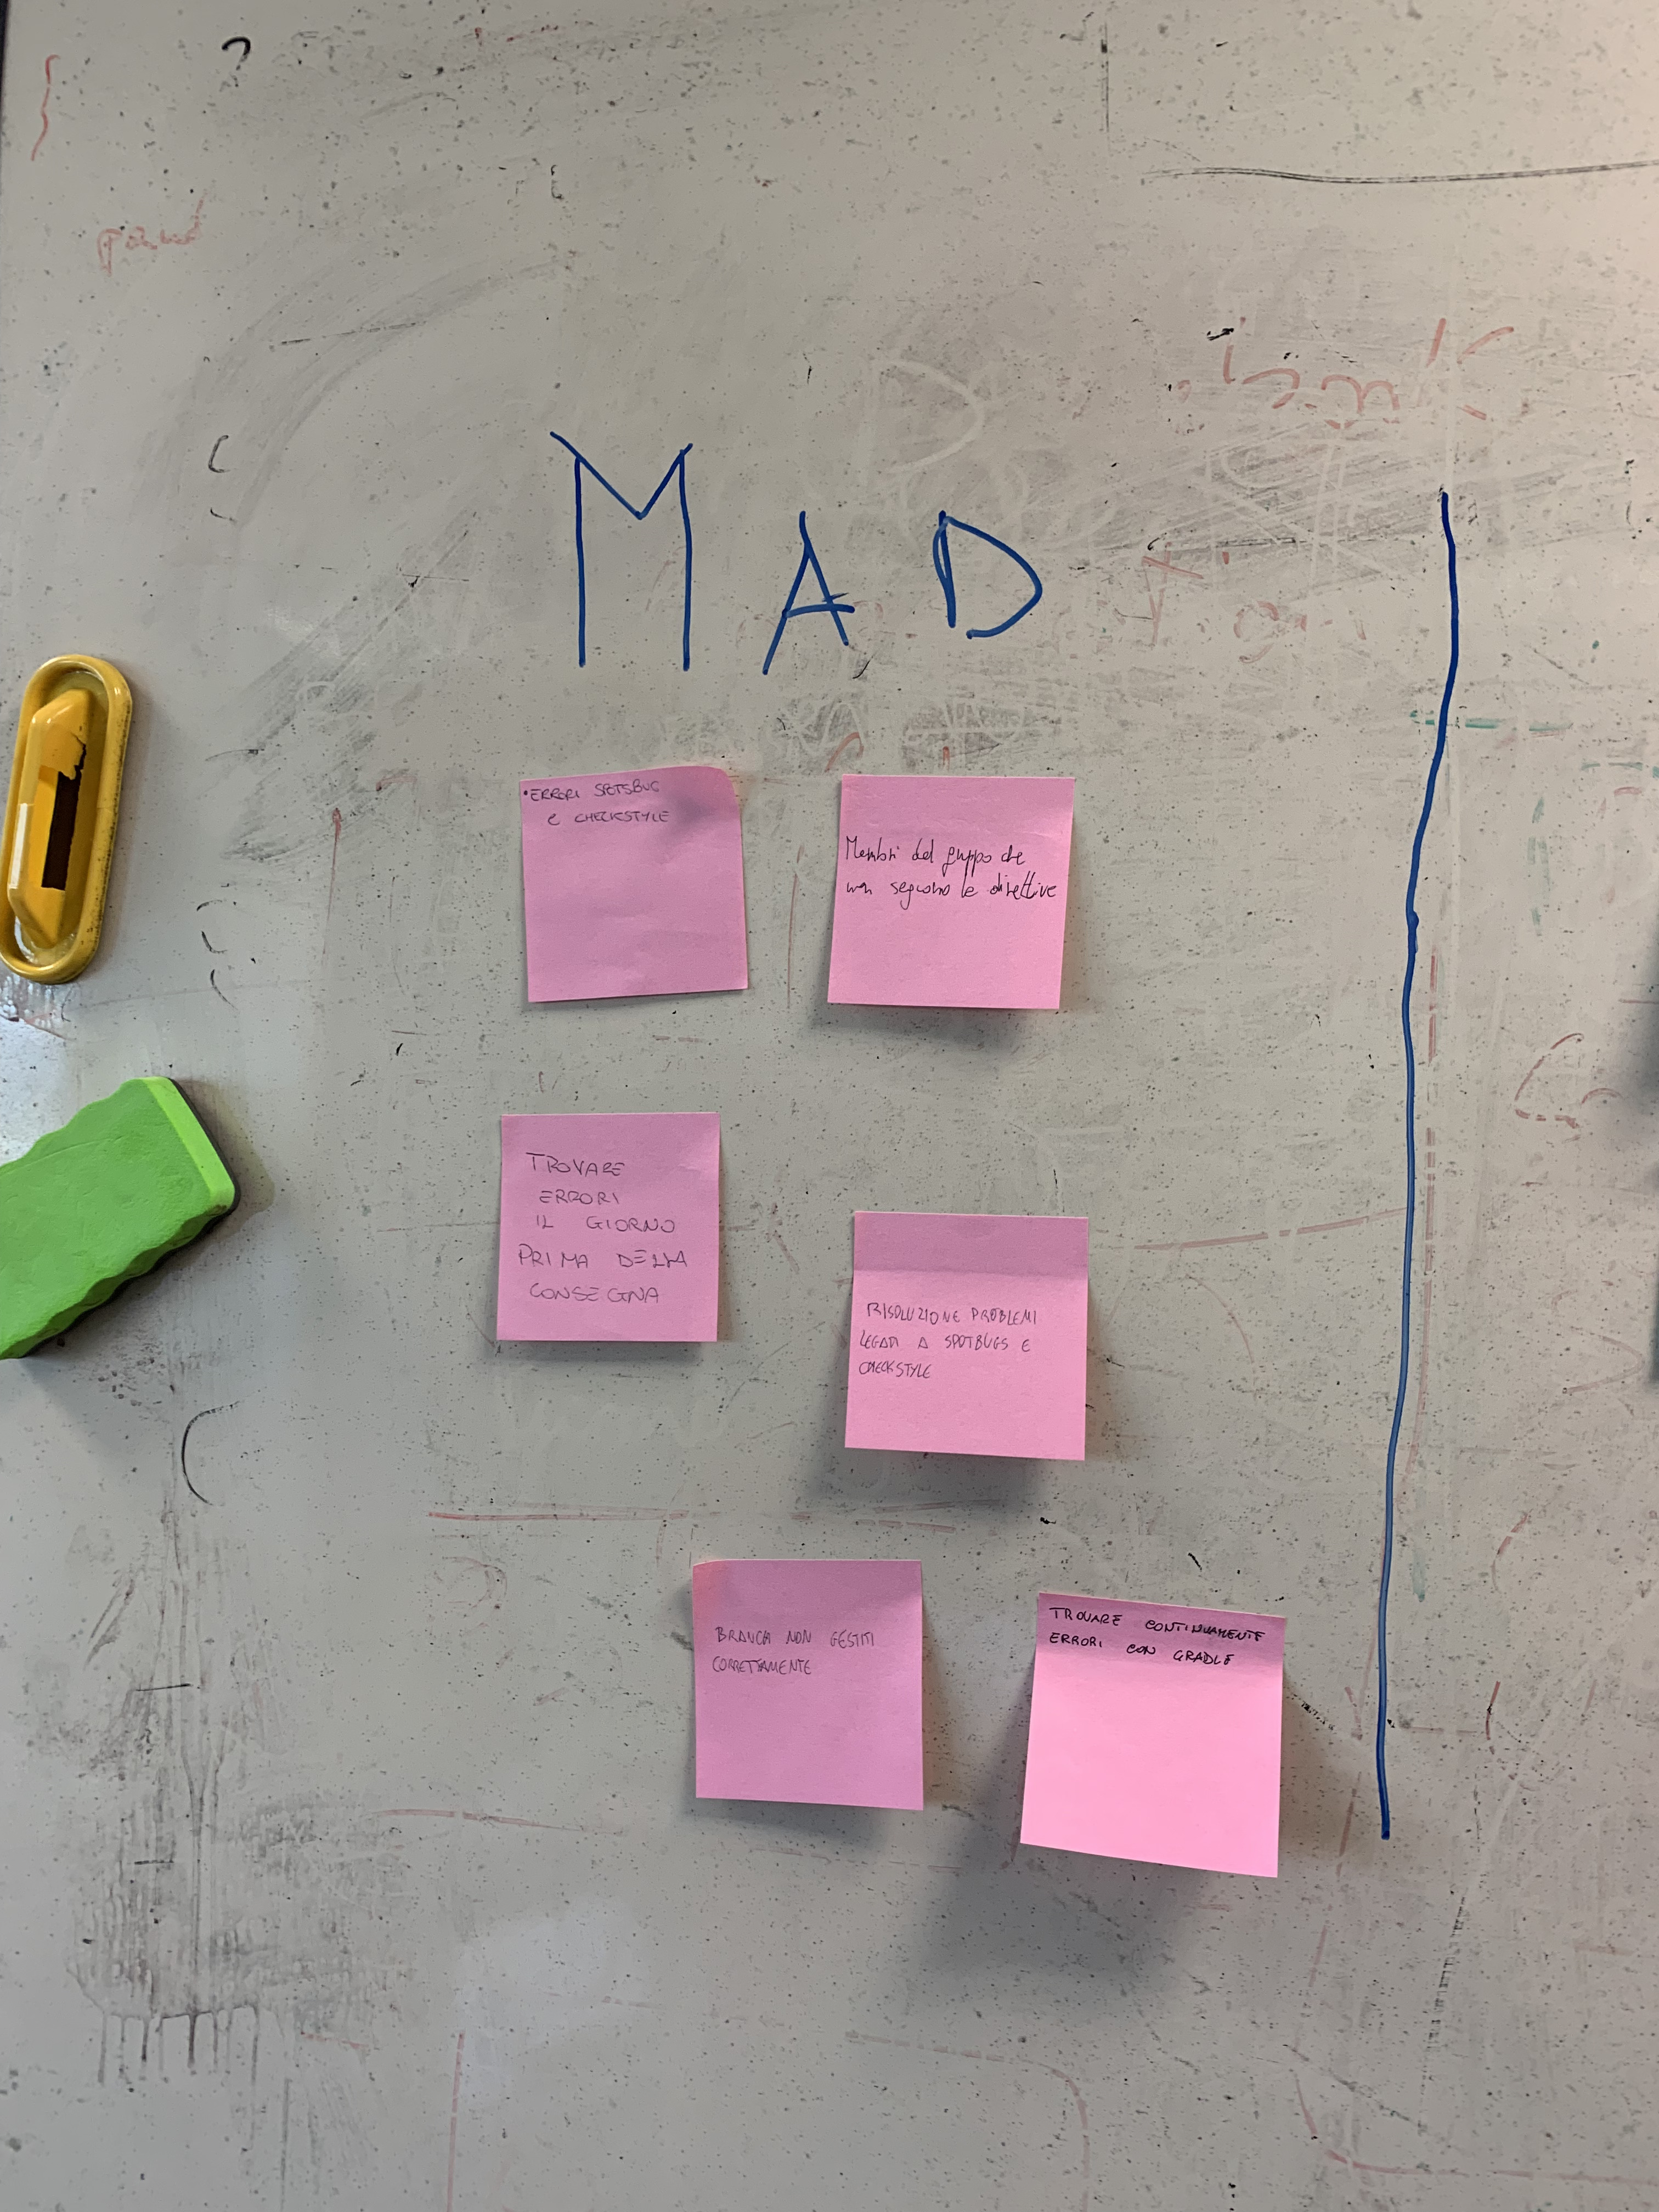 ?
MAD
•ERRORI SPOTSBUG
E CHECKSTYLE
Membri del gruppo che
non seguono le direttive
TROVARE
ERRORI
IL GIORNO
PRIMA DELLA
CONSEGNA
RISOLUZIONE PROBLEMI
LEGATI A SPOTBUGS E
CHECKSTYLE
BRANCH NON GESTITI
CORRETTAMENTE
TROVARE CONTINUAMENTE
ERRORI CON GRADLE